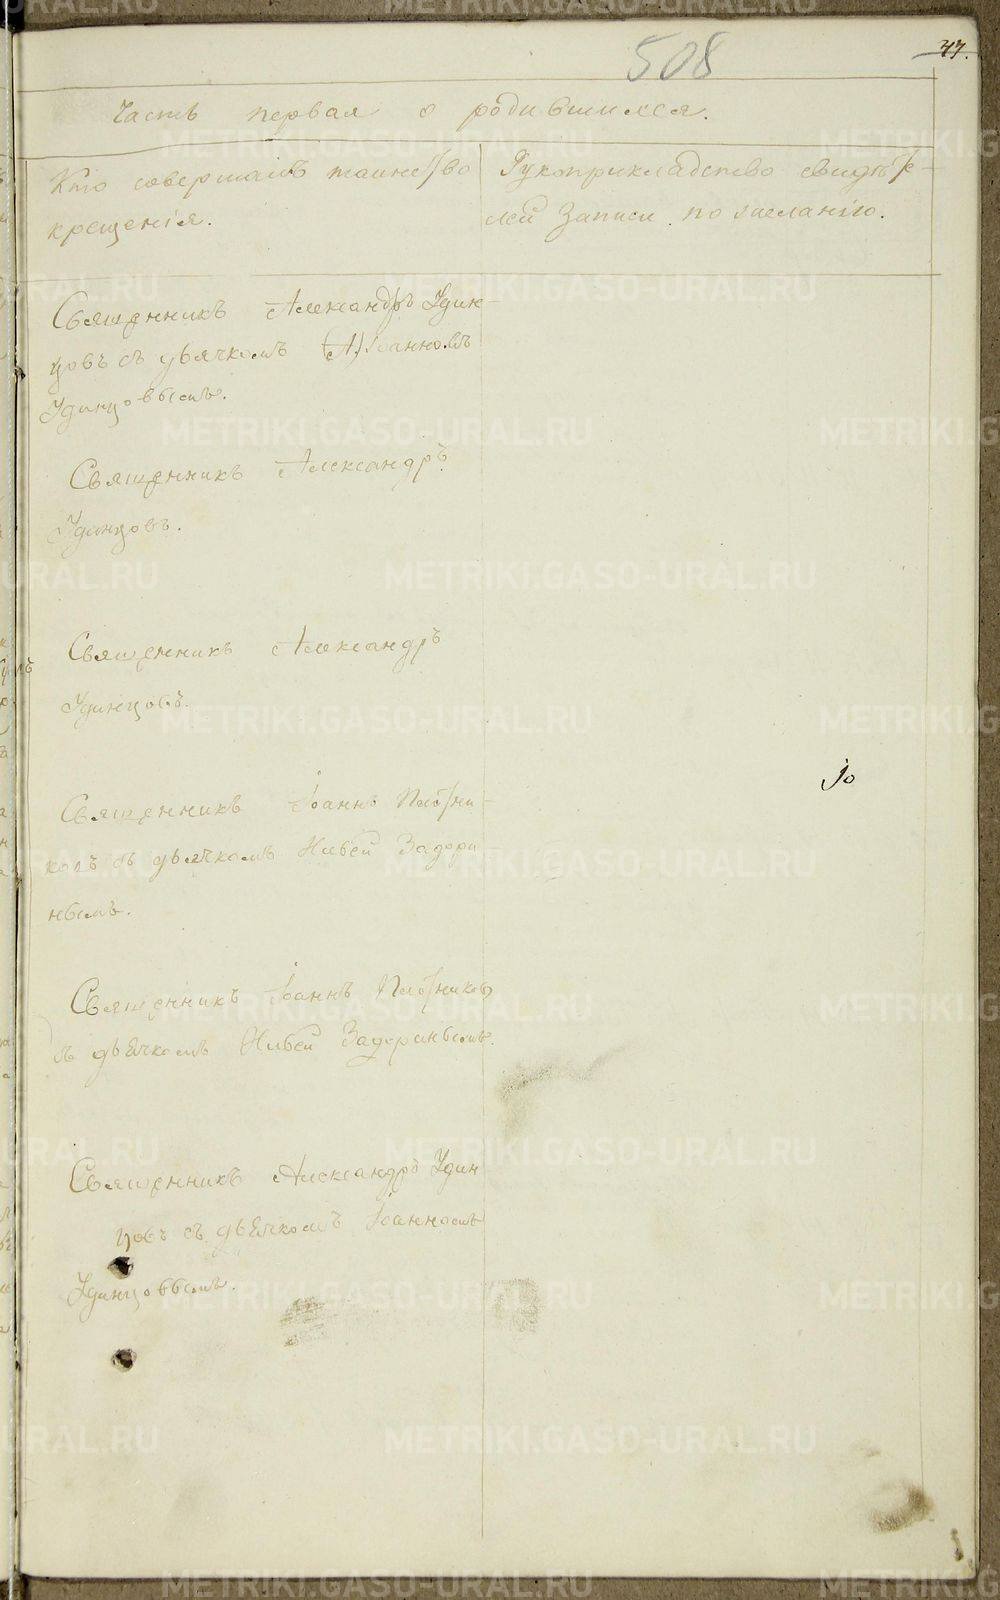 508
77.
Часть первая о родившихся.
Кто совершалъ таинство
крещенія.
Рукоприкладство свидѣте-
лей записи по желанію.
Священникъ Александръ Удин-
цовъ съ дьячкомъ Іоанномъ
Удинцовымъ.
Священникъ Александръ
Удинцовъ.
Священникъ Александръ
Удинцовъ.
Священникъ Іоаннъ Плотни-
ковъ съ дьячкомъ Задори
нымъ.
Священникъ Іоаннъ Плотниковъ
съ дьячкомъ Задоринымъ.
Священникъ Александръ Удин
цовъ съ дьячкомъ Іоанномъ
Удинцовымъ.
METRIKI.GASO-URAL.RU